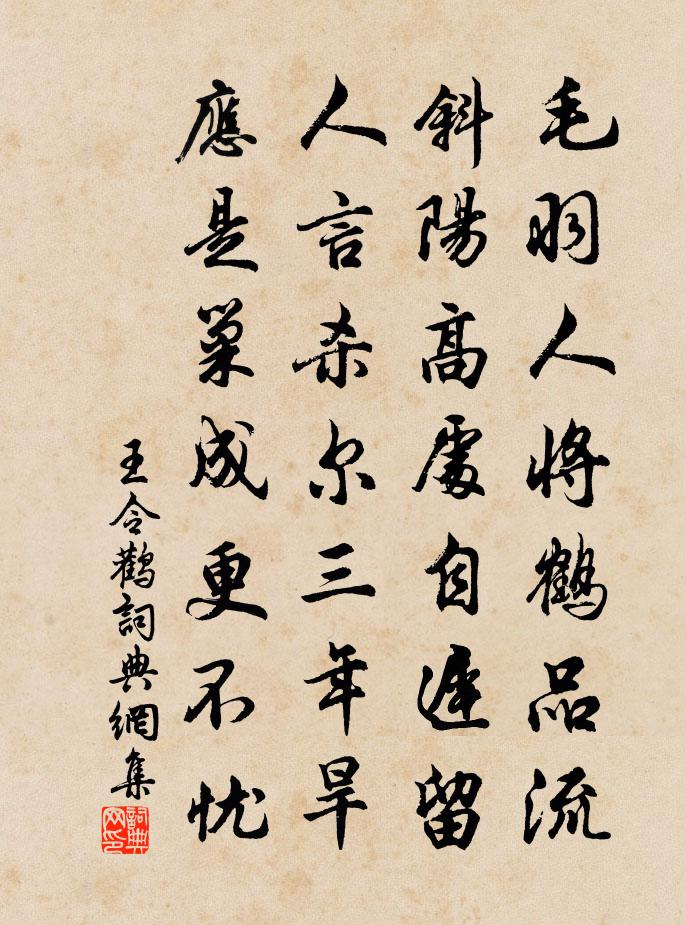 毛羽人将鶴品流
斜陽高處自遲留
人言杀尔三年旱
應是巢成更不忧
王令鸛詞典網集
詞典網印